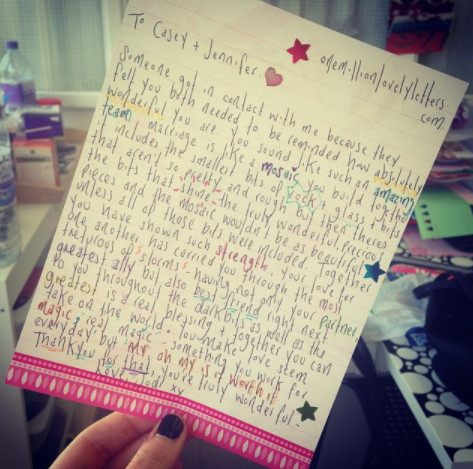 To Casey + Jennifer
onemillionlovelyletters.
com.
Someone got in contact with me because they
felt you both needed to be reminded how absolutely
wonderful you are. you sound like such an amazing
team. Marriage is like a mosaic you build together
it includes the smallest bits of rock + glass, bits
that aren't so great and rough but then theres
the bits that shine, the truly wonderful, precious
pieces and the mosaic wouldn't be as beautiful
unless all of those bits were included. Together
you have shown such strength. your love for
one another has carried you through the most
treturous of storms, having not only your partner
greatest ally but also best friend right next
to you throughout the dark bits as well as the
greatest is a real blessing + together you can
take on the world. You make love seem
magic, real magic, something you work for
everyday but my oh my is it worth it!
Thankyou for that, you're truly wonderful.
Love Jodi xx